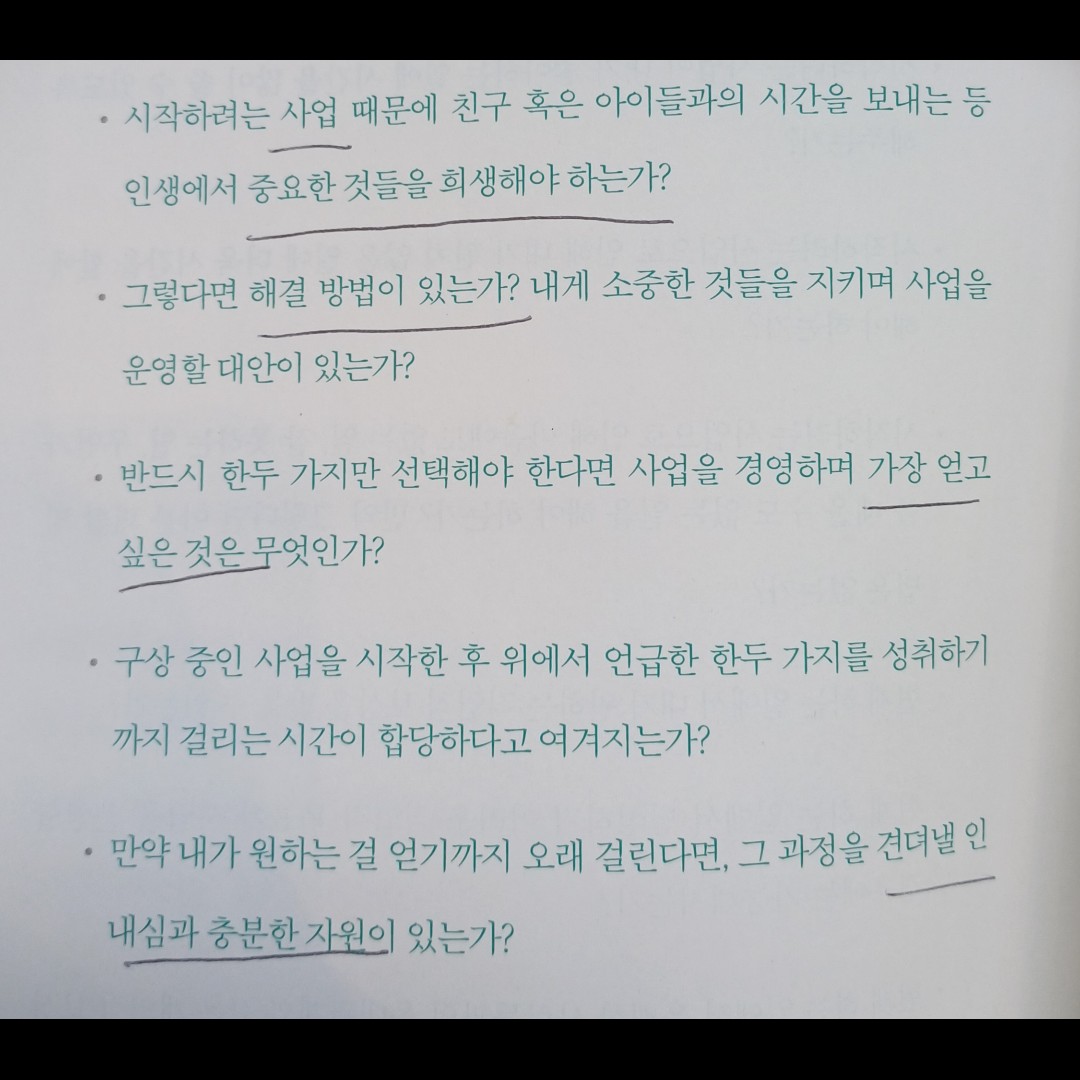 • 시작하려는 사업 때문에 친구 혹은 아이들과의 시간을 보내는 등
인생에서 중요한 것들을 희생해야 하는가?
• 그렇다면 해결 방법이 있는가? 내게 소중한 것들을 지키며 사업을
운영할 대안이 있는가?
• 반드시 한두 가지만 선택해야 한다면 사업을 경영하며 가장 얻고
싶은 것은 무엇인가?
• 구상 중인 사업을 시작한 후 위에서 언급한 한두 가지를 성취하기
까지 걸리는 시간이 합당하다고 여겨지는가?
• 만약 내가 원하는 걸 얻기까지 오래 걸린다면, 그 과정을 견뎌낼 인
내심과 충분한 자원이 있는가?